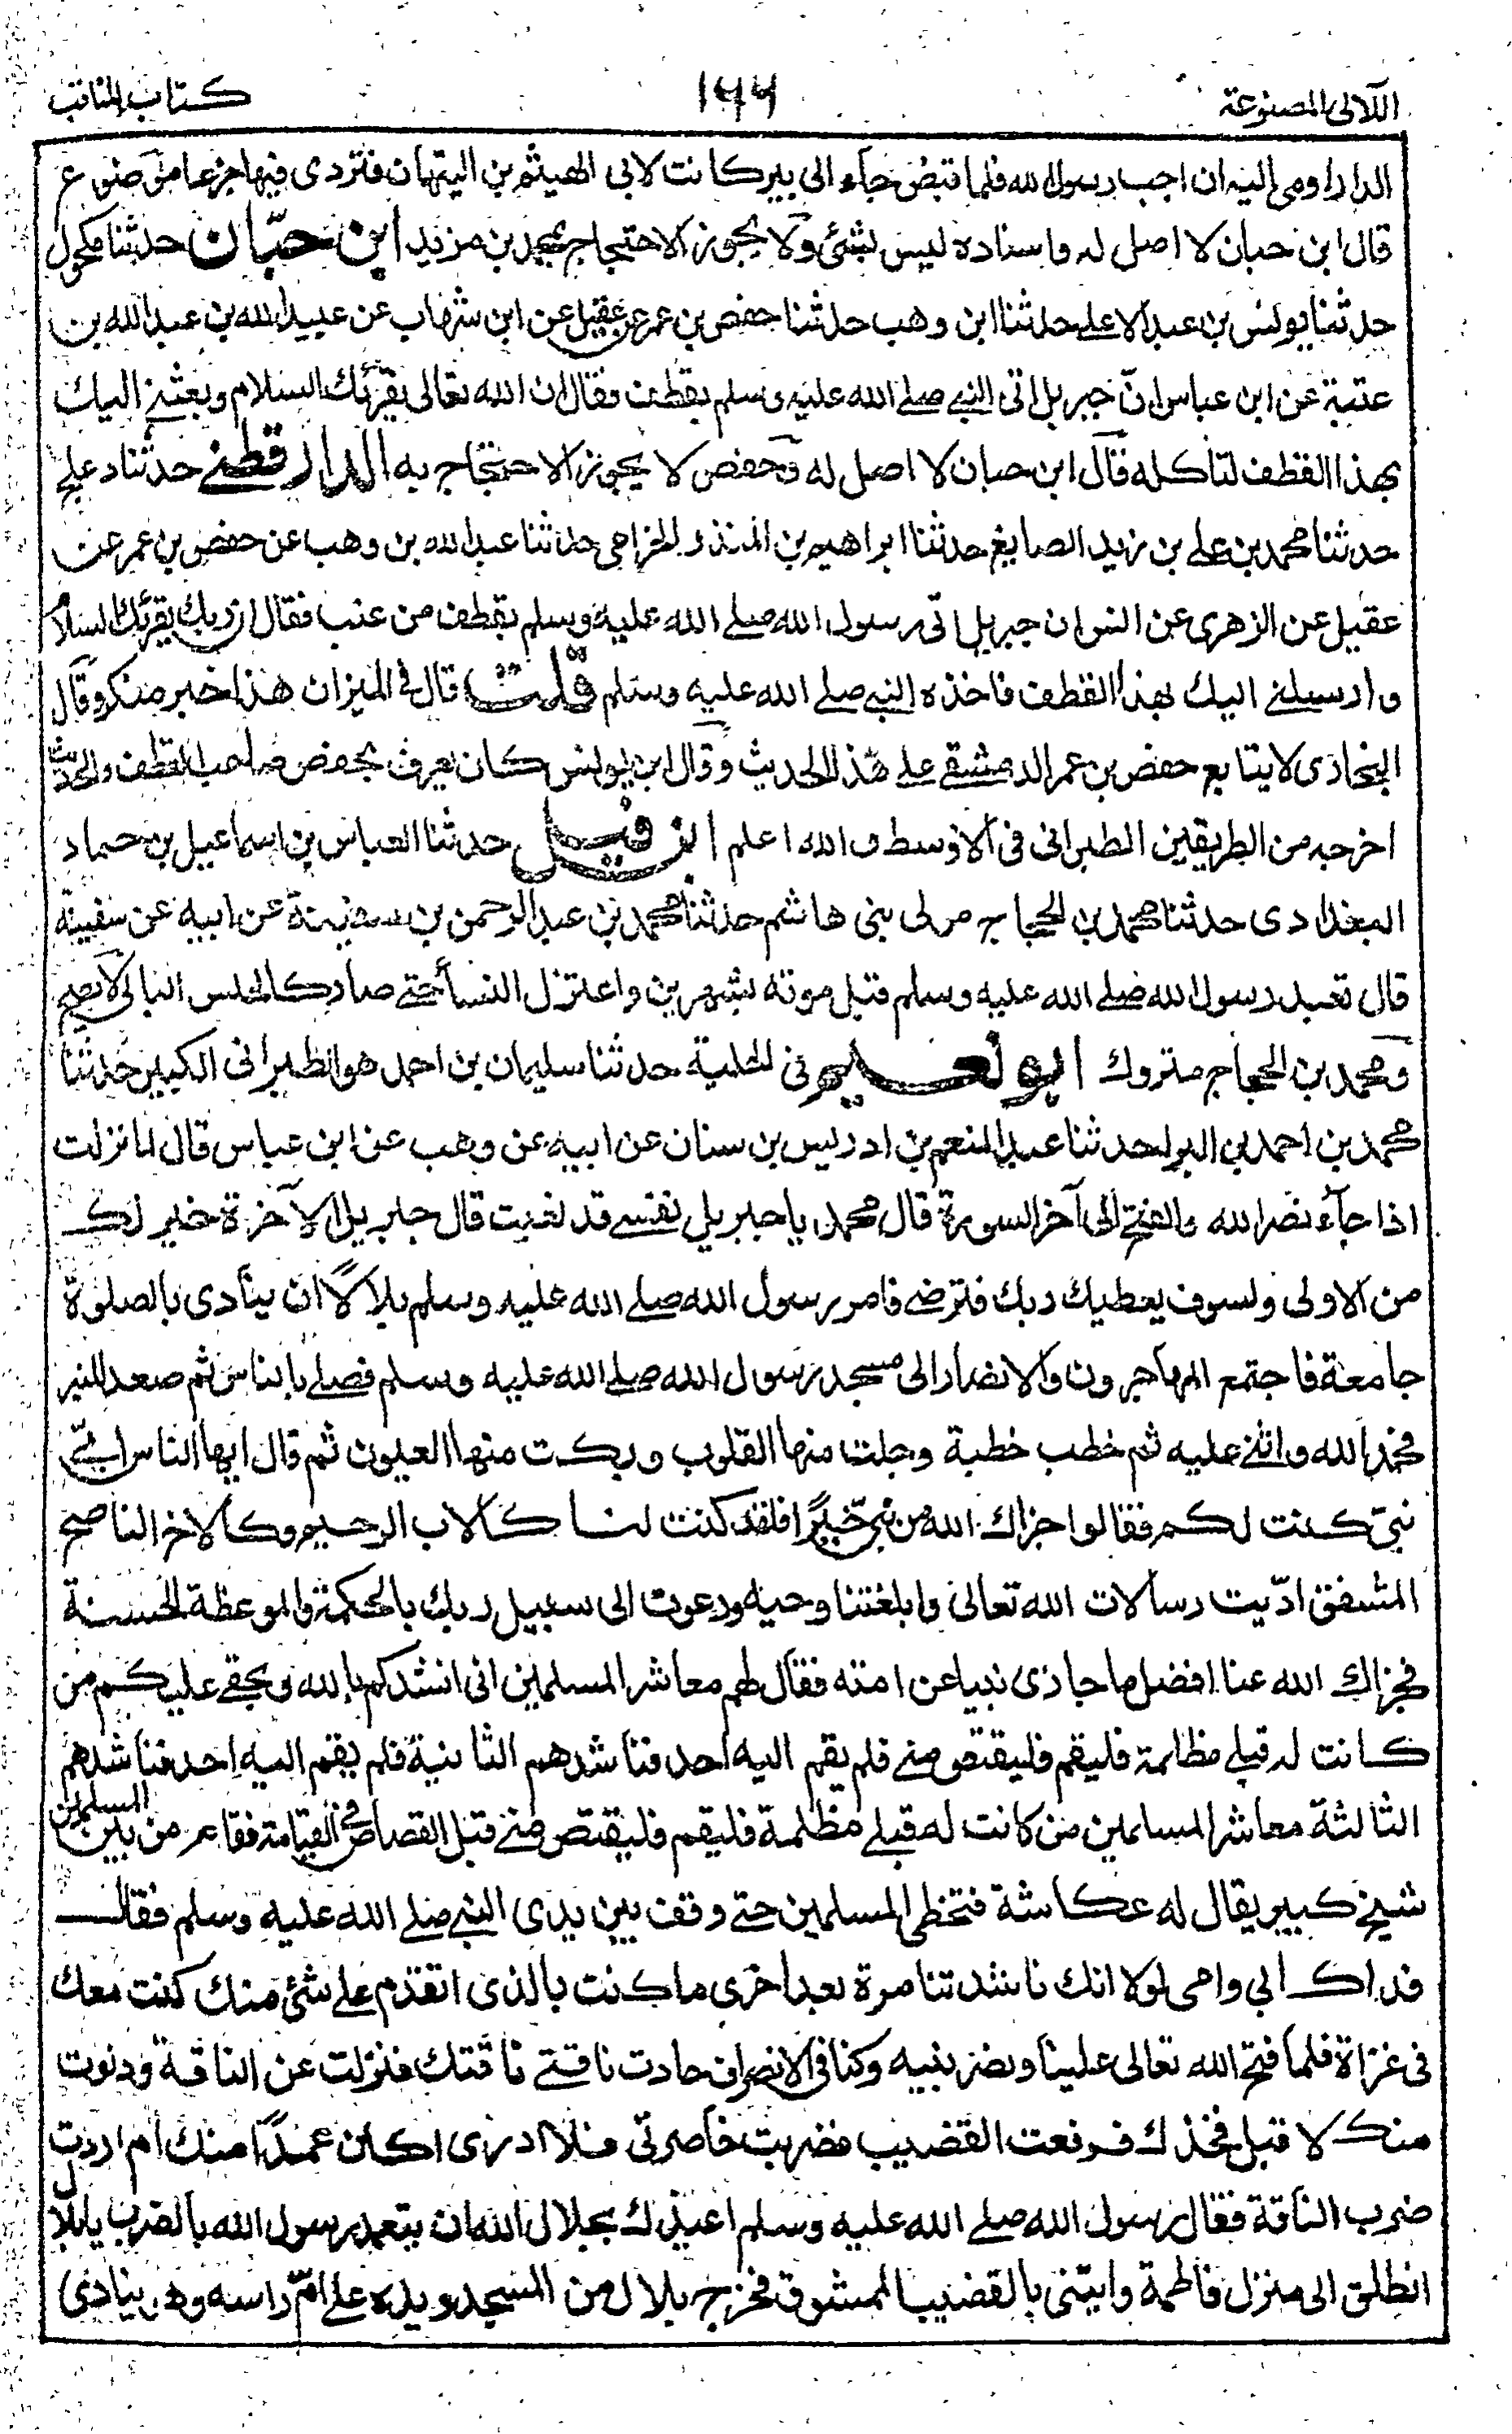 اللآلى المصنوعة
١٦٦
كتاب المناقب
الدار اومى إليه ان اجب رسول الله فلما قبض جاء الى بير كانت لابى الهيثم بن التيهان فتردى فيها جزعا موضوع
قال ابن حبان لا اصل له واسناده ليس بشئ ولا يجوز الاحتجاج بمحمد بن مزيد ابن حبّان حدثنا مكحول
حدثنا يونس بن عبد الاعلے حدثنا ابن وهب حدثنا حفص بن عمر عن عقيل عن ابن شهاب عن عبيد الله بن عبد الله بن
عتبة عن ابن عباس انّ جبريل اتى النبے صلے الله عليه وسلم بقطف فقال ان الله تعالى يقرئك السلام وبعثنے اليك
بهذا القطف لتاكله قال ابن حبان لا اصل له وحفص لا يجوز الاحتجاج به الدارقطنے حدثنا دعلج
حدثنا محمد بن علے بن زيد الصايغ حدثنا ابراهيم بن المنذر الحزامى حدثنا عبد الله بن وهب عن حفص بن عمر عن
عقيل عن الزهرى عن انس ان جبريل اتى رسول الله صلے الله عليه وسلم بقطف من عنب فقال ان ربك يقرئك السلام
وارسلنے اليك بهذا القطف فاخذه النبے صلے الله عليه وسلم قلت قال فى الميزان هذا خبر منكر وقال
البخارى لا يتابع حفص بن عمر الدمشقے علے هذا الحديث وقال ابن يونس كان يعرف بحفص صاحب القطف والحديث
اخرجه من الطريقين الطبرانى فى الاوسط والله اعلم ابن قيل حدثنا العباس بن اسماعيل بن حماد
البغدادى حدثنا محمد بن الحجاج مولى بنى هاشم حدثنا محمد بن عبد الرحمن بن سفينة عن ابيه عن سفينة
قال تعبد رسول الله صلے الله عليه وسلم قبل موته بشهرين واعتزل النسا حتے صار كالحلس البالى لا يصح
ومحمد بن الحجاج متروك ابو نعيم فى الحلية حدثنا سليمان بن احمد هو الطبرانى الكبير حدثنا
محمد بن احمد بن البرا حدثنا عبد المنعم بن ادريس بن سنان عن ابيه عن وهب عن ابن عباس قال لما نزلت
اذا جآء نصر الله والفتح الى آخر السورة قال محمد يا جبريل نفسے قد نعيت قال جبريل الآخرة خير لك
من الاولى ولسوف يعطيك ربك فترضے فامر رسول الله صلے الله عليه وسلم بلالاً ان ينادى بالصلوة
جامعة فاجتمع المهاجرون والانصار الى مسجد رسول الله صلے الله عليه وسلم فصلے بالناس ثم صعد المنبر
فحمد الله واثنے عليه ثم خطب خطبة وجلت منها القلوب وبكت منها العيون ثم قال ايها الناس اىّ
نبىّ كنت لكم فقالوا جزاك الله من نبى خيرًا فلقد كنت لنا كالاب الرحيم وكالاخ الناصح
المشفق ادّيت رسالات الله تعالى وابلغتنا وحيه ودعوت الى سبيل ربك بالحكمة والموعظة الحسنة
فجزاك الله عنا افضل ما جازى نبيا عن امته فقال لهم معاشر المسلمين انى انشدكم بالله وبحقے عليكم من
كانت له قبلے مظلمة فليقم فليقتص منے فلم يقم اليه احد فناشدهم الثانية فلم يقم اليه احد فناشدهم
الثالثة معاشر المسلمين من كانت له قبلے مظلمة فليقم فليقتص منے قبل القصاص فى القيامة فقام من بين المسلمين
شيخ كبير يقال له عكاشة فتخطى المسلمين حتے وقف بين يدى النبے صلے الله عليه وسلم فقال
فداك ابى وامى لولا انك ناشدتنا مرة بعد اخرى ما كنت بالذى اتقدم علے شئ منك كنت معك
فى غزاة فلما فتح الله تعالى علينا ونصر نبيه وكنا فى الانصراف حادت ناقتے ناقتك فنزلت عن الناقة ودنوت
منك لاقبل فخذك فرفعت القضيب فضربت خاصرتى فلا ادرى اكان عمدًا منك ام اردت
ضرب الناقة فقال رسول الله صلے الله عليه وسلم اعيذك بجلال الله ان يتعمد رسول الله بالضرب يا بلال
انطلق الى منزل فاطمة وايتنى بالقضيب الممشوق فخرج بلال من المسجد ويده علے امّ راسه وهو ينادى